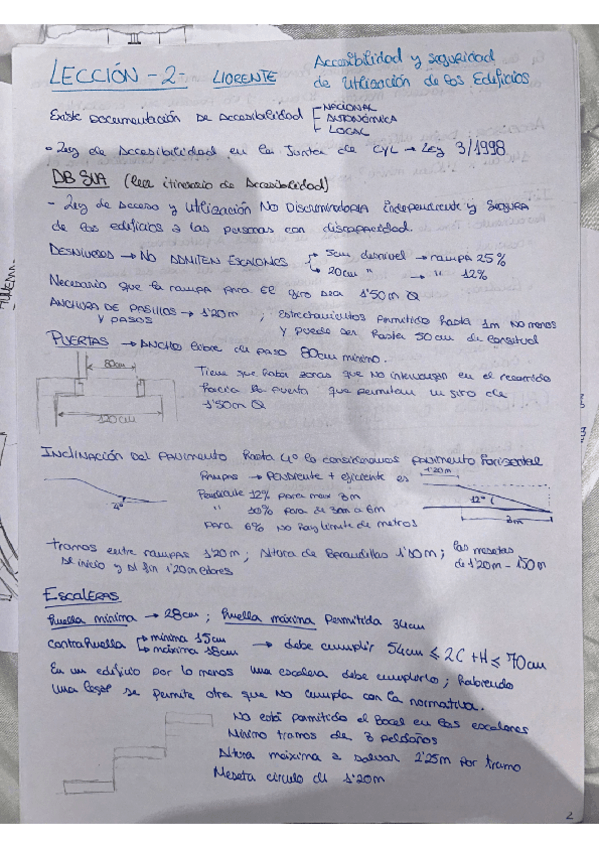 LECCIÓN - 2 - LLORENTE
Accesibilidad y seguridad
de utilización de los Edificios
Existe Documentación de Accesibilidad
NACIONAL
AUTONÓMICA
LOCAL
- Ley de Accesibilidad en la Junta de CYL → Ley 3/1998
DB SUA (leer itinerario de Accesibilidad)
- Ley de Acceso y utilización No Discriminatoria Independiente y Segura
de los edificios a las personas con discapacidad.
DESNIVELES → No ADMITEN ESCALONES
5cm desnivel → rampa 25%
20cm " → " 12%
Necesario que la rampa para el giro sea 1'50m Ø
ANCHURA DE PASILLOS → 1'20m ; Estrechamientos permitido hasta 1m No menos
Y PASOS
y puede ser hasta 50cm de longitud
PUERTAS → ANCHO libre de paso 80cm mínimo.
80cm
120cm
Tiene que haber zonas que No intervengan en el recorrido
hacia la puerta que permitan un giro de
1'50m Ø
Inclinación del pavimento hasta 4º lo consideramos pavimento horizontal
4º
Rampas → Pendiente + eficiente es
Pendiente 12% para max 3m
" 10% para de 3m a 6m
Para 6% No hay límite de metros
1'20m
12º
3m
Tramos entre rampas 1'20m ; Altura de Barandillas 1'10m ; las mesetas
de inicio y de fin 1'20m
de 1'20m - 1'50m
ESCALERAS
Huella mínima → 28cm ; Huella máxima permitida 34cm
Contrahuella
mínima 15cm
máxima 18cm
→ debe cumplir 54cm ≤ 2C + H ≤ 70cm
En un edificio por lo menos una escalera debe cumplirlo ; habiendo
una legal se permite otra que No cumpla con la normativa.
No está permitido el Bocel en los escalones
Mínimo tramos de 3 peldaños
Altura máxima a salvar 2'25m por tramo
Meseta círculo de 1'20m
2